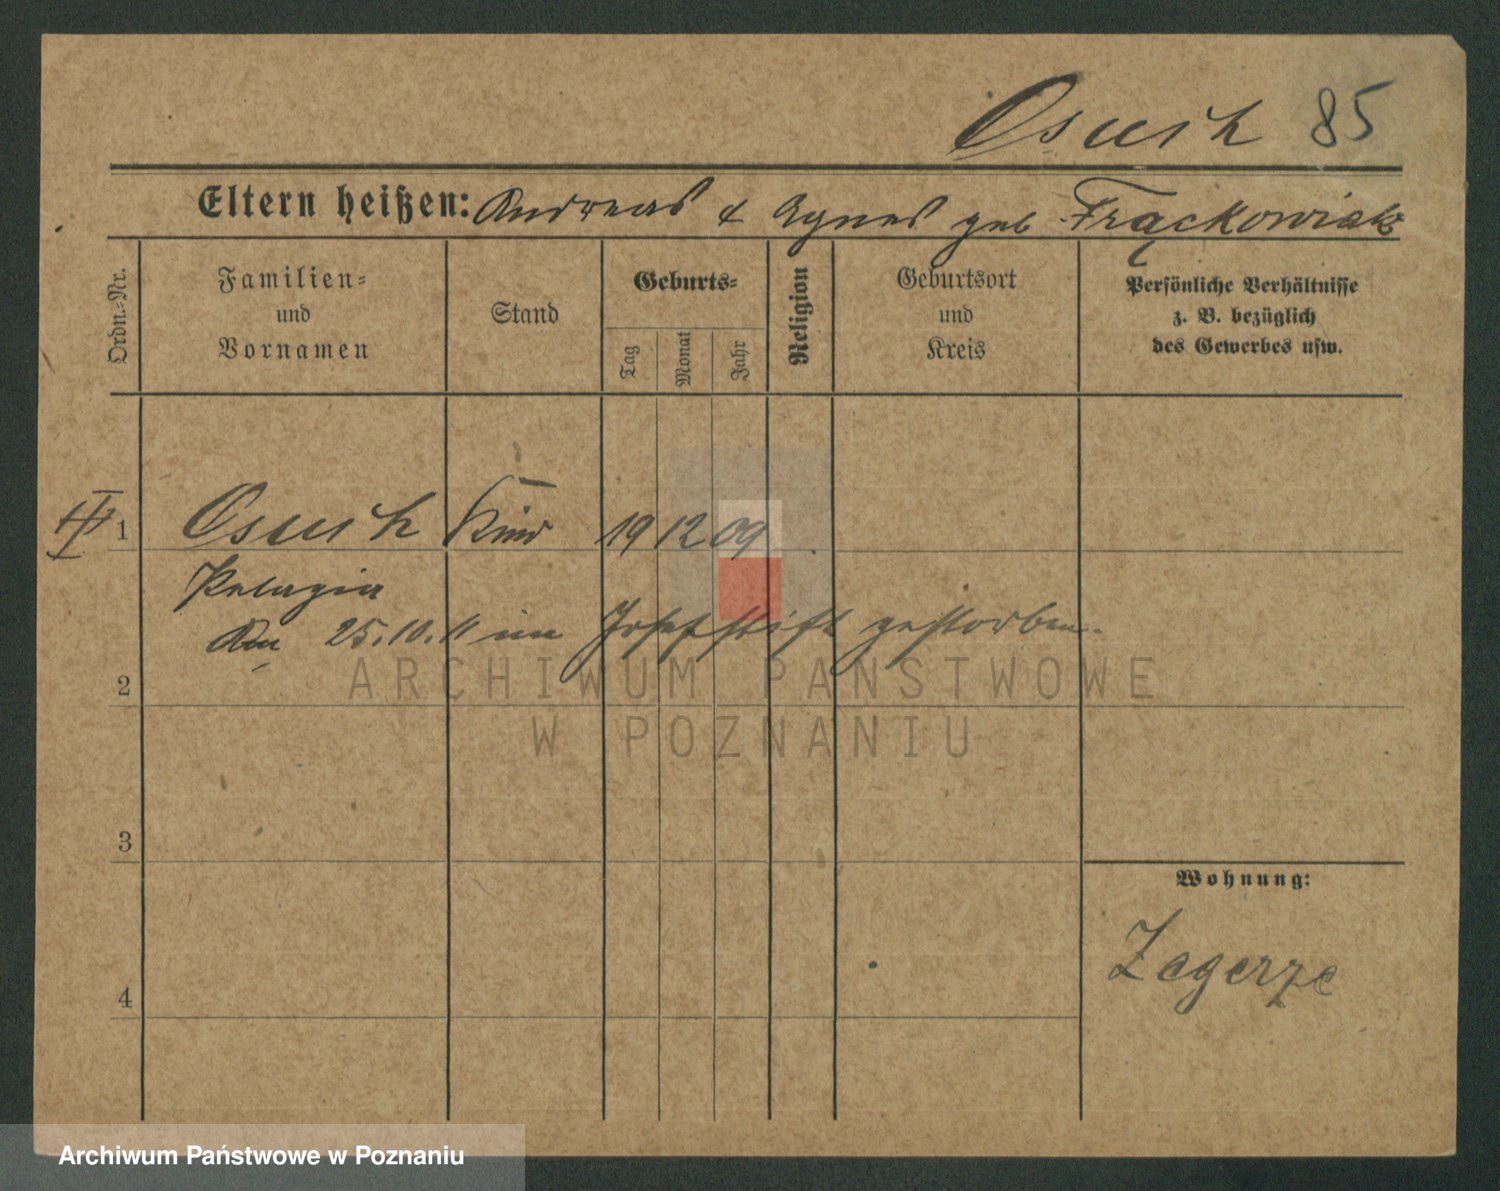 Osuch 85
Eltern heißen: Andreas & Agnes geb. Frąckowiak
Ordn.-Nr.
Familien-
und
Vornamen
Stand
Geburts-
Tag
Monat
Jahr
Religion
Geburtsort
und
Kreis
Persönliche Verhältnisse
z. B. bezüglich
des Gewerbes usw.
1 Osuch Kind 19 12 09
Pelagia
Am 25.10.11 im Josefstift gestorben.
2
3
4
Wohnung:
Zagorze
ARCHIWUM PAŃSTWOWE
W POZNANIU
Archiwum Państwowe w Poznaniu